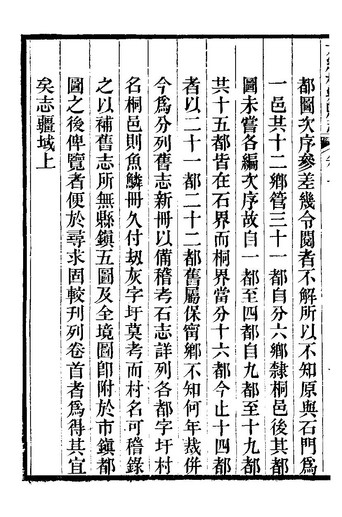 都圖次序參差幾令閱者不解所以不知原與石門爲
一邑其十二鄉管三十一都自分六鄉隸桐邑後其都
圖未嘗各編次序故自一都至四都自九都至十九都
共十五都皆在石界而桐界當分十六都今止十四都
者以二十一都二十二都舊屬保甯鄉不知何年裁併
今爲分列舊志新冊以備稽考石志詳列各都字圩村
名桐邑則魚鱗冊久付刼灰字圩莫考而村名可稽錄
之以補舊志所無縣鎭五圖及全境圖卽附於市鎭都
圖之後俾覽者便於尋求固較刋列卷首者爲得其宜
矣志疆域上